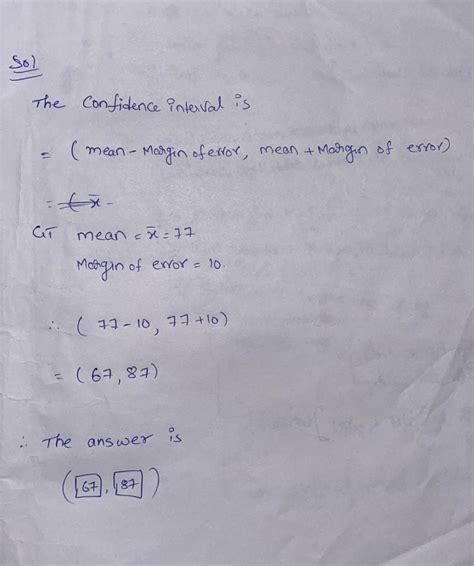 Sol
The Confidence interval is
= ( mean - Margin of error, mean + Margin of error)
= ( x̄ -
GT mean = x̄ = 77
Margin of error = 10.
∴ ( 77-10, 77+10)
= (67, 87)
∴ The answer is
( 67, 87 )